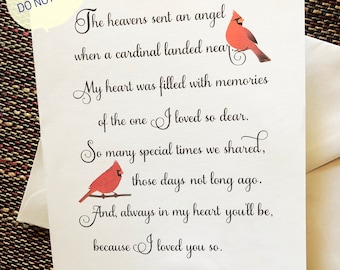 DO NO
The heavens sent an angel
when a cardinal landed near
My heart was filled with memories
of the one I loved so dear.
So many special times we shared,
those days not long ago.
And, always in my heart you'll be,
because I loved you so.